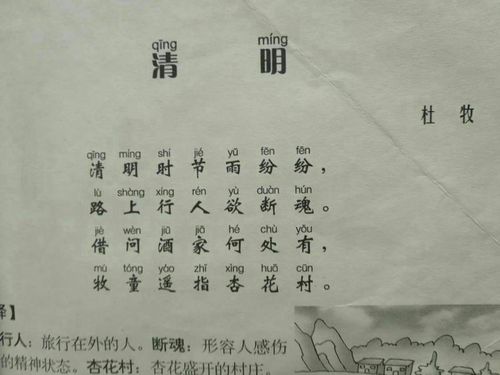 qīng míng
清 明
杜 牧
qīng míng shí jié yǔ fēn fēn
清 明 时 节 雨 纷 纷，
lù shàng xíng rén yù duàn hún
路 上 行 人 欲 断 魂。
jiè wèn jiǔ jiā hé chù yǒu
借 问 酒 家 何 处 有，
mù tóng yáo zhǐ xìng huā cūn
牧 童 遥 指 杏 花 村。
释】
行人：旅行在外的人。断魂：形容人感伤
的精神状态。杏花村：杏花盛开的村庄。